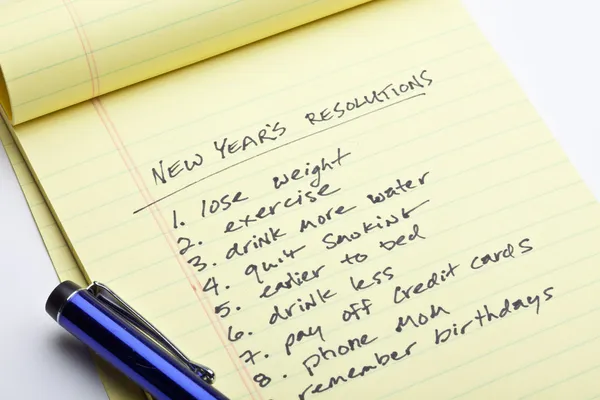 NEW YEAR'S RESOLUTIONS
1. lose weight
2. exercise
3. drink more water
4. quit smoking
5. earlier to bed
6. drink less
7. pay off credit cards
8. phone Mom
remember birthdays